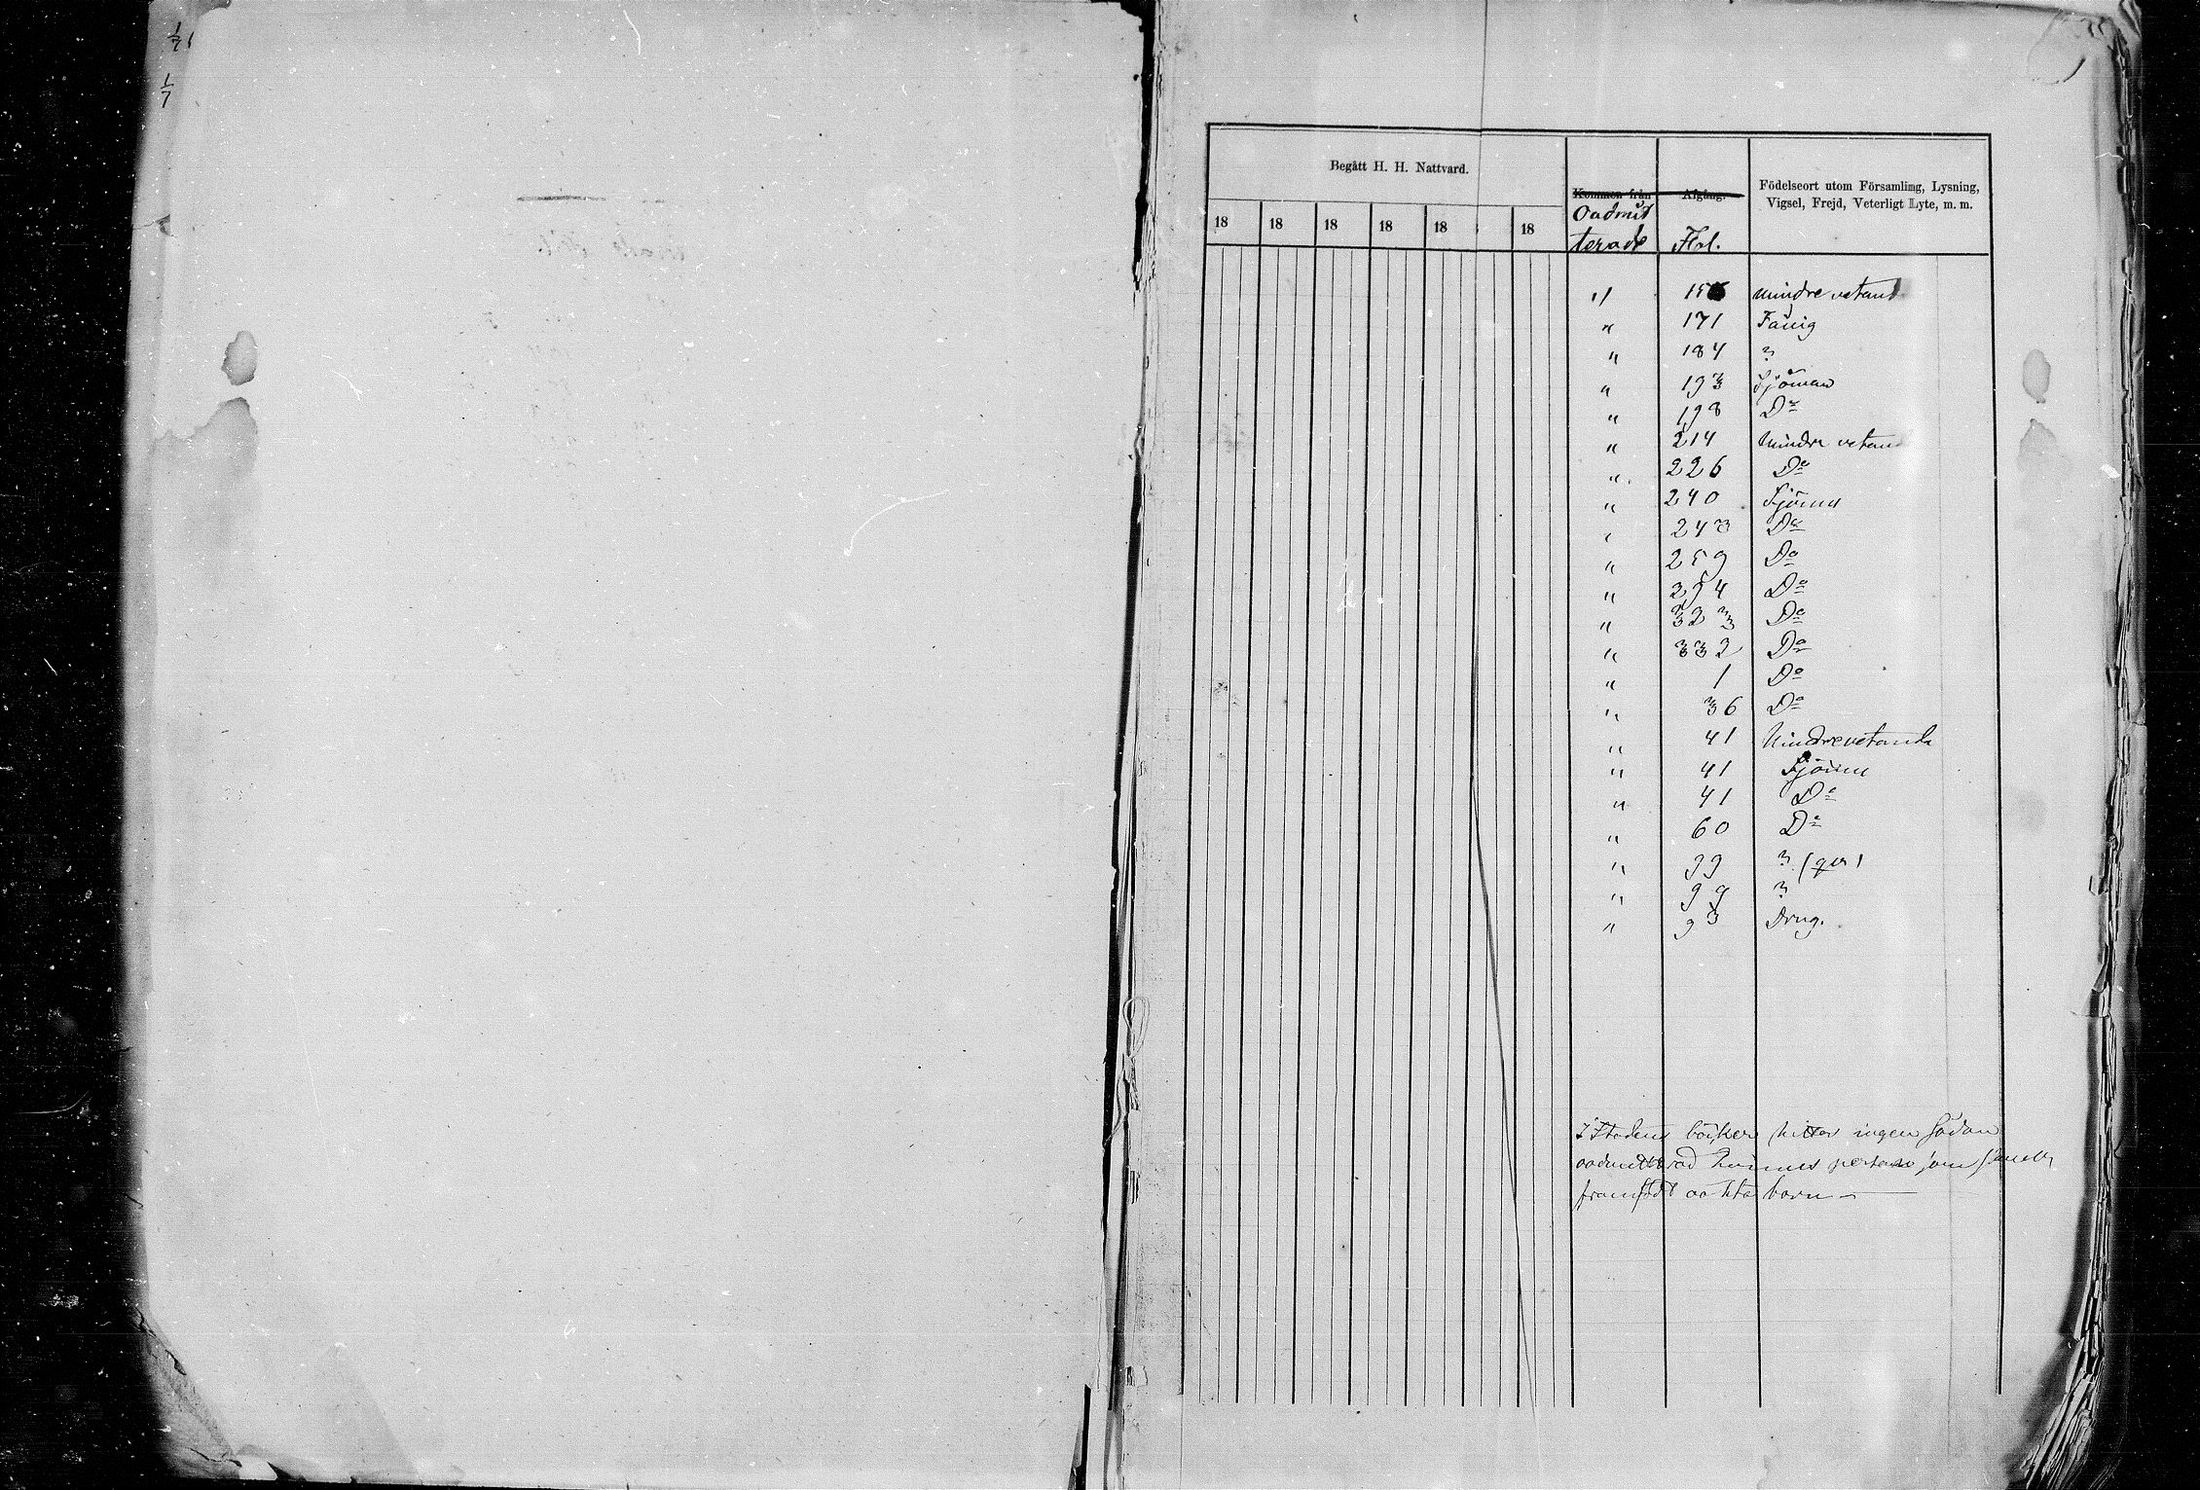 1/7 1
1/7
Begått H. H. Nattvard.
Kommen från
Afgång.
Födelseort utom Församling, Lysning,
Vigsel, Frejd, Veterligt Lyte, m. m.
18 18 18 18 18 18
Oadmit
terade Fol.
" mindre vetand
" 171 Fånig
" 184 ?
" 193 Sjöman
" 198 Do
" 214 Mindre vetan
" 226 Do
" 240 Sjöman
" 243 Do
" 259 Do
" 294 Do
" 323 Do
" 332 Do
" 1 Do
" 36 Do
" 41 Mindrevetande
" 41 Sjöman
" 41 Do
" 60 Do
" 99 ?
" 99 ?
" 93 Dräng.
I Stadens böcker hittas ingen sådan
oadmitterad person som
framfödt oäkta barn —